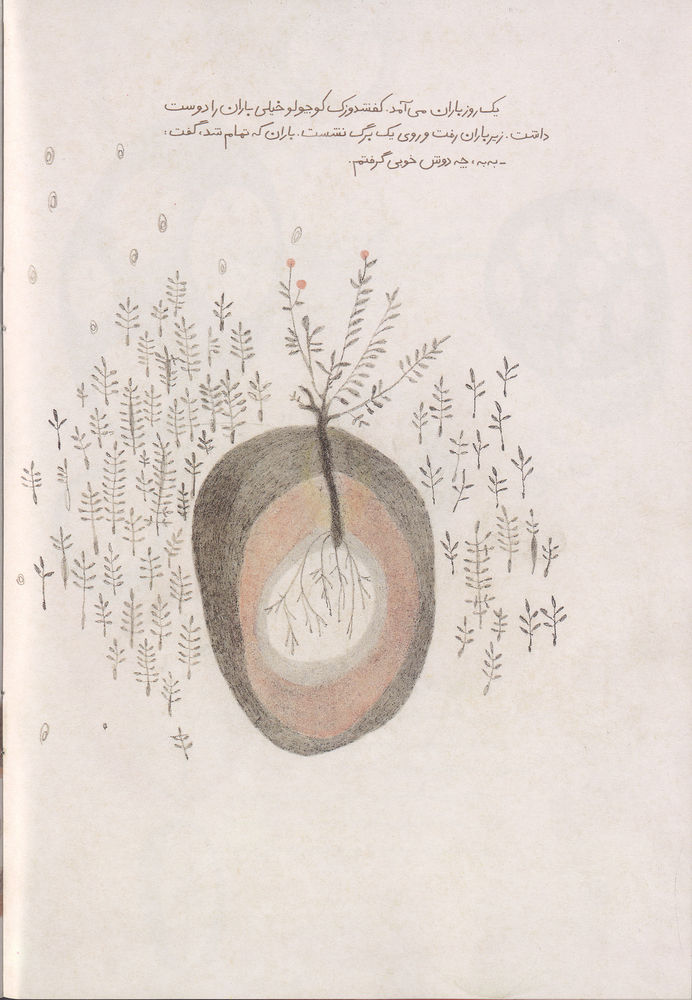 یک روز باران می‌آمد. کفشدوزک کوچولو خیلی باران را دوست
داشت. زیر باران رفت و روی یک برگ نشست. باران که تمام شد، گفت:
- به‌به، چه دوش خوبی گرفتم.